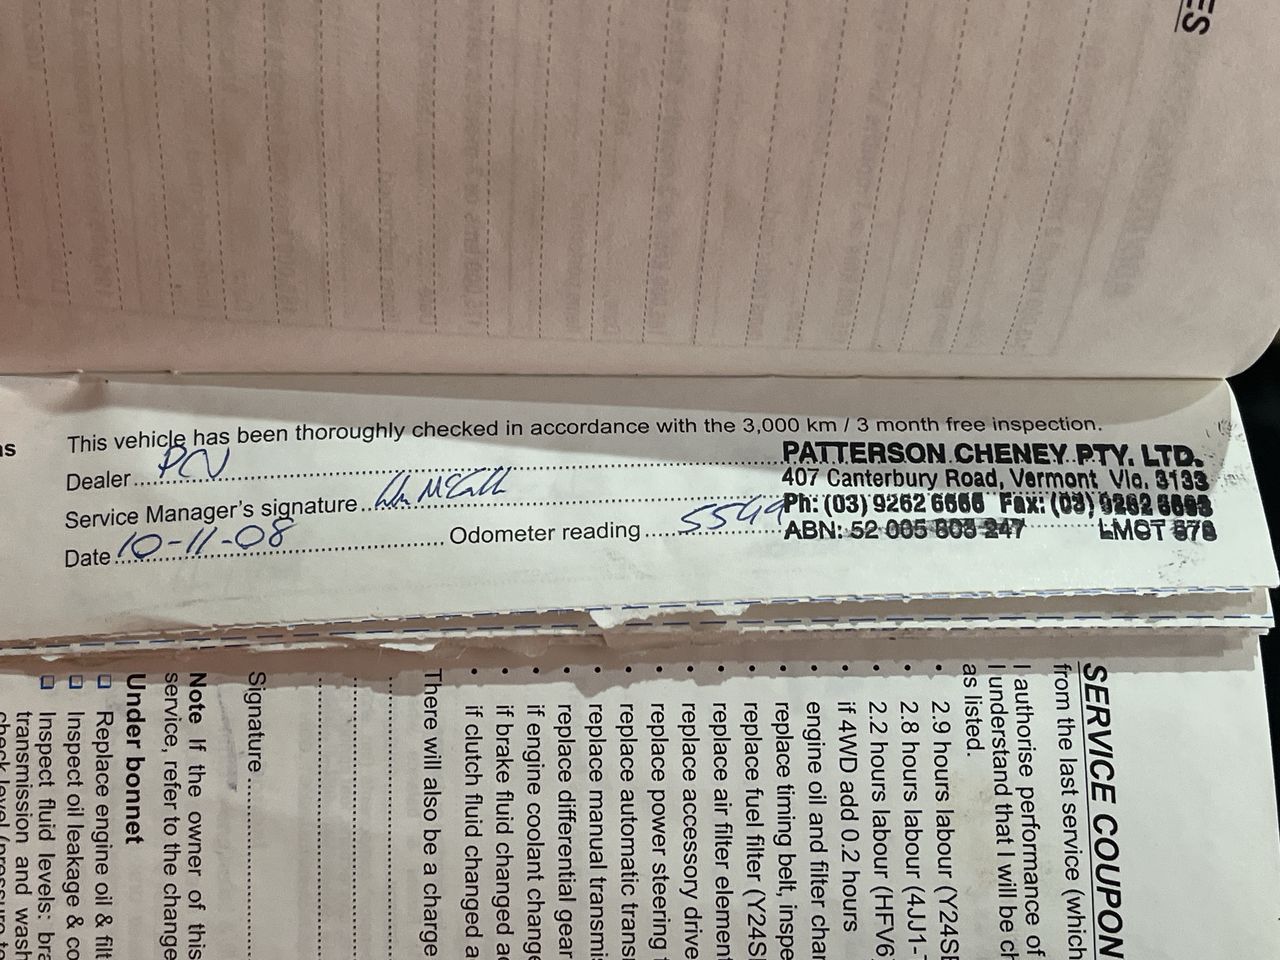 ES
This vehicle has been thoroughly checked in accordance with the 3,000 km / 3 month free inspection.
Dealer PCV
PATTERSON CHENEY PTY. LTD.
407 Canterbury Road, Vermont Vic. 3133
Service Manager's signature
Ph: (03) 9262 6666 Fax: (03)
Date 10-11-08 Odometer reading 5549
ABN: 52 005 803 247 LMCT
SERVICE COUPON
from the last service (which
I authorise performance of
I understand that I will be ch
as listed.
• 2.9 hours labour (Y24SE
• 2.8 hours labour (4JJ1-T
• 2.2 hours labour (HFV6
• if 4WD add 0.2 hours
• engine oil and filter char
• replace timing belt, inspe
• replace fuel filter (Y24SE
• replace air filter element
• replace accessory drive
• replace power steering
• replace automatic trans
• replace manual transmis
• replace differential gear
• if engine coolant change
• if brake fluid changed a
• if clutch fluid changed a
There will also be a charge
Signature
Note If the owner of this
service, refer to the change
Under bonnet
Replace engine oil & filt
Inspect oil leakage & co
Inspect fluid levels: bra
transmission and wash